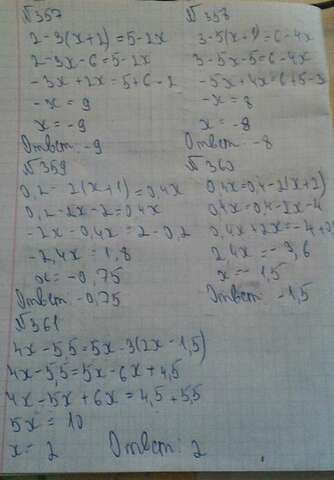 №357
2-3(x+2)=5-2x
2-3x-6=5-2x
-3x+2x=5+6-2
-x=9
x=-9
Ответ: -9
№358
3-5(x+1)=6-4x
3-5x-5=6-4x
-5x+4x=6+5-3
-x=8
x=-8
Ответ: -8
№359
0,2-2(x+1)=0,4x
0,2-2x-2=0,4x
-2x-0,4x=2-0,2
-2,4x=1,8
x=-0,75
Ответ: -0,75
№360
0,4x=0,4-2(x+2)
0,4x=0,4-2x-4
0,4x+2x=-4+0,4
2,4x=-3,6
x=-1,5
Ответ: -1,5
№361
4x-5,5=5x-3(2x-1,5)
4x-5,5=5x-6x+4,5
4x-5x+6x=4,5+5,5
5x=10
x=2 Ответ: 2